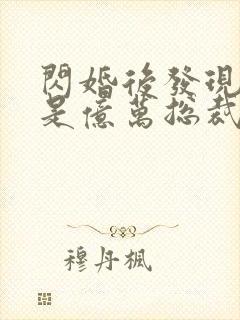 閃婚後發現
是億萬總裁
穆丹楓